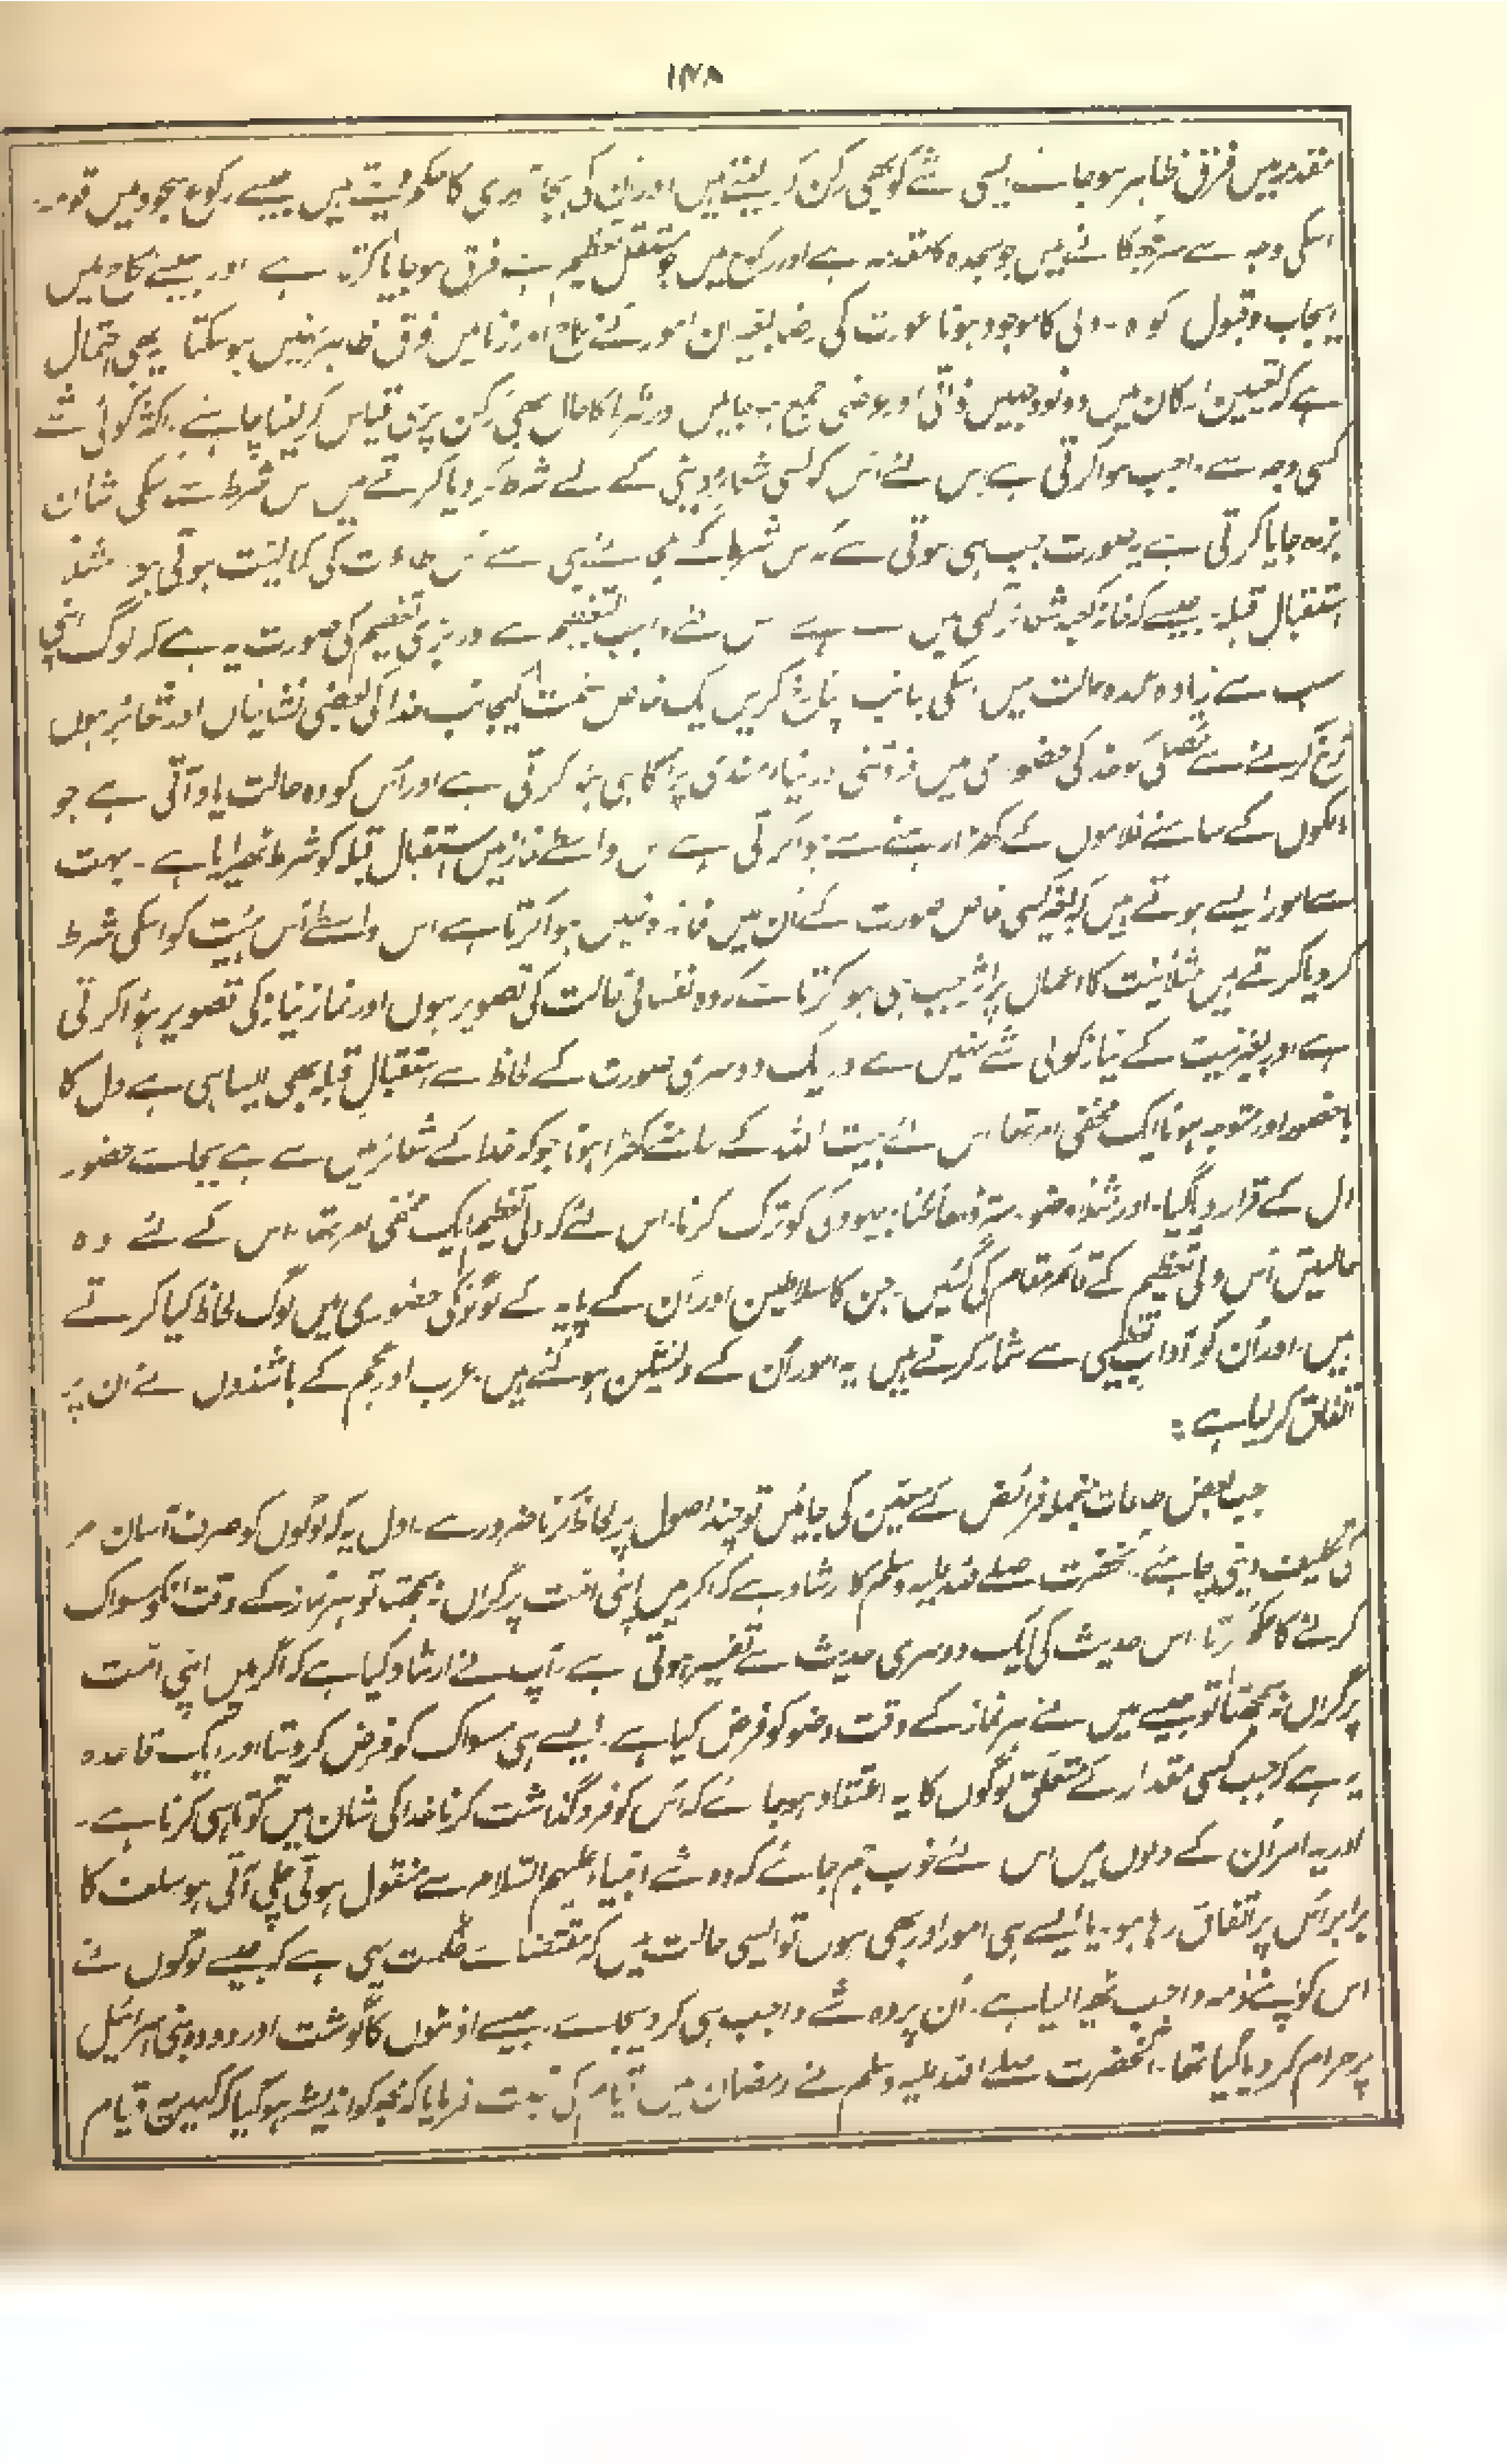 ۱۴۸
مقدمہ میں فرق ظاہر ہو جائے ایسی شے کو بھی رکن کر لیتے ہیں اور ان کی بجا آوری کا حکم دیتے ہیں جیسے رکوع و سجود میں قومہ۔
اسکی وجہ سے سر جھکانے میں جو سجدہ کا مقدمہ ہے اور رکوع میں جو مستقل تعظیم ہے فرق ہو جایا کرتا ہے اور جیسے نکاح میں
ایجاب و قبول گواہ۔ ولی کا موجود ہونا عورت کی رضا بغیر ان امور کے نکاح اور زنا میں فرق ظاہر نہیں ہو سکتا یہ بھی احتمال
ہے کہ تعیین ارکان میں دونو وجہیں ذاتی اور عرضی جمع ہو جائیں اور شرط کا حال بھی رکن پر ہی قیاس کر لینا چاہئے۔ اکثر کوئی شے
کسی وجہ سے واجب ہوا کرتی ہے اس لئے اس کو کسی شعار دینی کے لے شرط کر دیا کرتے ہیں اس شرط سے اسکی شان
بڑھ جایا کرتی ہے یہ صورت جب ہی ہوتی ہے کہ اس شرط کے ملجانے ہی سے اس طاعت کی کمالیت ہوتی ہو مثلاً
استقبال قبلہ جیسے کہ خانہ کعبہ شعائر الہی میں سے ہے اس لئے واجب التعظیم ہے اور بڑی تعظیم کی صورت یہ ہے کہ لوگ اپنی
سب سے زیادہ عمدہ حالت میں اسکی جانب اپنا رخ کریں ایک خاص سمت کیجانب خدا کی بعض نشانیاں اور شعائر ہوں
رخ کرنے سے مصلی کو خدا کی حضوری میں فروتنی اور نیازمندی پر آگاہی ہوا کرتی ہے اور اس کو وہ حالت یاد آتی ہے جو
مالکوں کے سامنے غلاموں کے کھڑا رہنے سے ہوا کرتی ہے اس واسطے نماز میں استقبال قبلہ کو شرط ٹھیرایا ہے۔ بہت
سے امور ایسے ہوتے ہیں کہ بغیر کسی خاص صورت کے ان میں فائدہ نہیں ہوا کرتا ہے اس واسطے اس ہیئت کو اسکی شرط
کر دیا کرتے ہیں مثلاً نیت کا اعمال پر اثر جب ہی ہوا کرتا ہے کہ وہ نفسانی حالت کی تصویر ہوں اور نماز نیاز کی تصویر ہوا کرتی
ہے اور بغیر نیت کے نیاز کوئی شے نہیں ہے اور ایک دوسری صورت کے لحاظ سے استقبال قبلہ بھی ایسا ہی ہے دل کا
باحضور اور متوجہ ہونا ایک مخفی امر تھا اس لئے بیت اللہ کے سامنے کھڑا ہونا جو کہ خدا کے شعائر میں سے ہے بجائے حضور
دل کے قرار دیا گیا۔ اور مثلاً وضو۔ ستر ڈھانکنا۔ بیہودگی کو ترک کرنا۔ اس لئے کہ دلی تعظیم ایک مخفی امر تھا۔ اس کے لئے وہ
حالتیں اس دلی تعظیم کے قائم مقام کی گئیں۔ جن کا سلاطین اور ان کے پایہ کے لوگوں کی حضوری میں لوگ لحاظ کیا کرتے
ہیں۔ اور ان کو آداب تعظیمی سے شمار کرتے ہیں یہ امور ان کے دلنشین ہو گئے ہیں۔ عرب اور عجم کے باشندوں نے ان پر
اتفاق کر لیا ہے :
جب بعض طاعات منجملہ فرائض کے معین کی جائیں تو چند اصول پر لحاظ کرنا ضرور ہے۔ اول یہ کہ لوگوں کو صرف آسان امر
کی تکلیف دینی چاہئے۔ آنحضرت صلے اللہ علیہ وسلم کا ارشاد ہے کہ اگر میں اپنی امت پر گراں نہ سمجھتا تو ہر نماز کے وقت انکو مسواک
کرنے کا حکم کرتا۔ اس حدیث کی ایک دوسری حدیث سے تفسیر ہوتی ہے۔ آپ نے ارشاد کیا ہے کہ اگر میں اپنی امت
پر گراں نہ سمجھتا تو جیسے میں نے ہر نماز کے وقت وضو کو فرض کیا ہے۔ ایسے ہی مسواک کو فرض کر دیتا اور ایک قاعدہ
یہ ہے کہ جب کسی مقدار کے متعلق لوگوں کا یہ اعتقاد ہو جائے کہ اس کو فروگذاشت کرنا خدا کی شان میں کوتاہی کرنا ہے۔
اور یہ امر ان کے دلوں میں اس لئے خوب جم جائے کہ وہ شے انبیاء علیہم السلام سے منقول ہوتی چلی آتی ہو سلف کا
برابر اس پر اتفاق رہا ہو۔ یا ایسے ہی امور اور بھی ہوں تو ایسی حالت میں کہ مقتضائے حکمت یہی ہے کہ جیسے لوگوں نے
اس کو اپنے ذمہ واجب ٹھیرا لیا ہے۔ ان پر وہ شے واجب ہی کر دیجائے۔ جیسے اونٹوں کا گوشت اور دودھ بنی اسرائیل
پر حرام کر دیا گیا تھا۔ آنحضرت صلے اللہ علیہ وسلم نے رمضان میں قیام کی نسبت فرمایا کہ مجھ کو اندیشہ ہو گیا کہ کہیں قیام